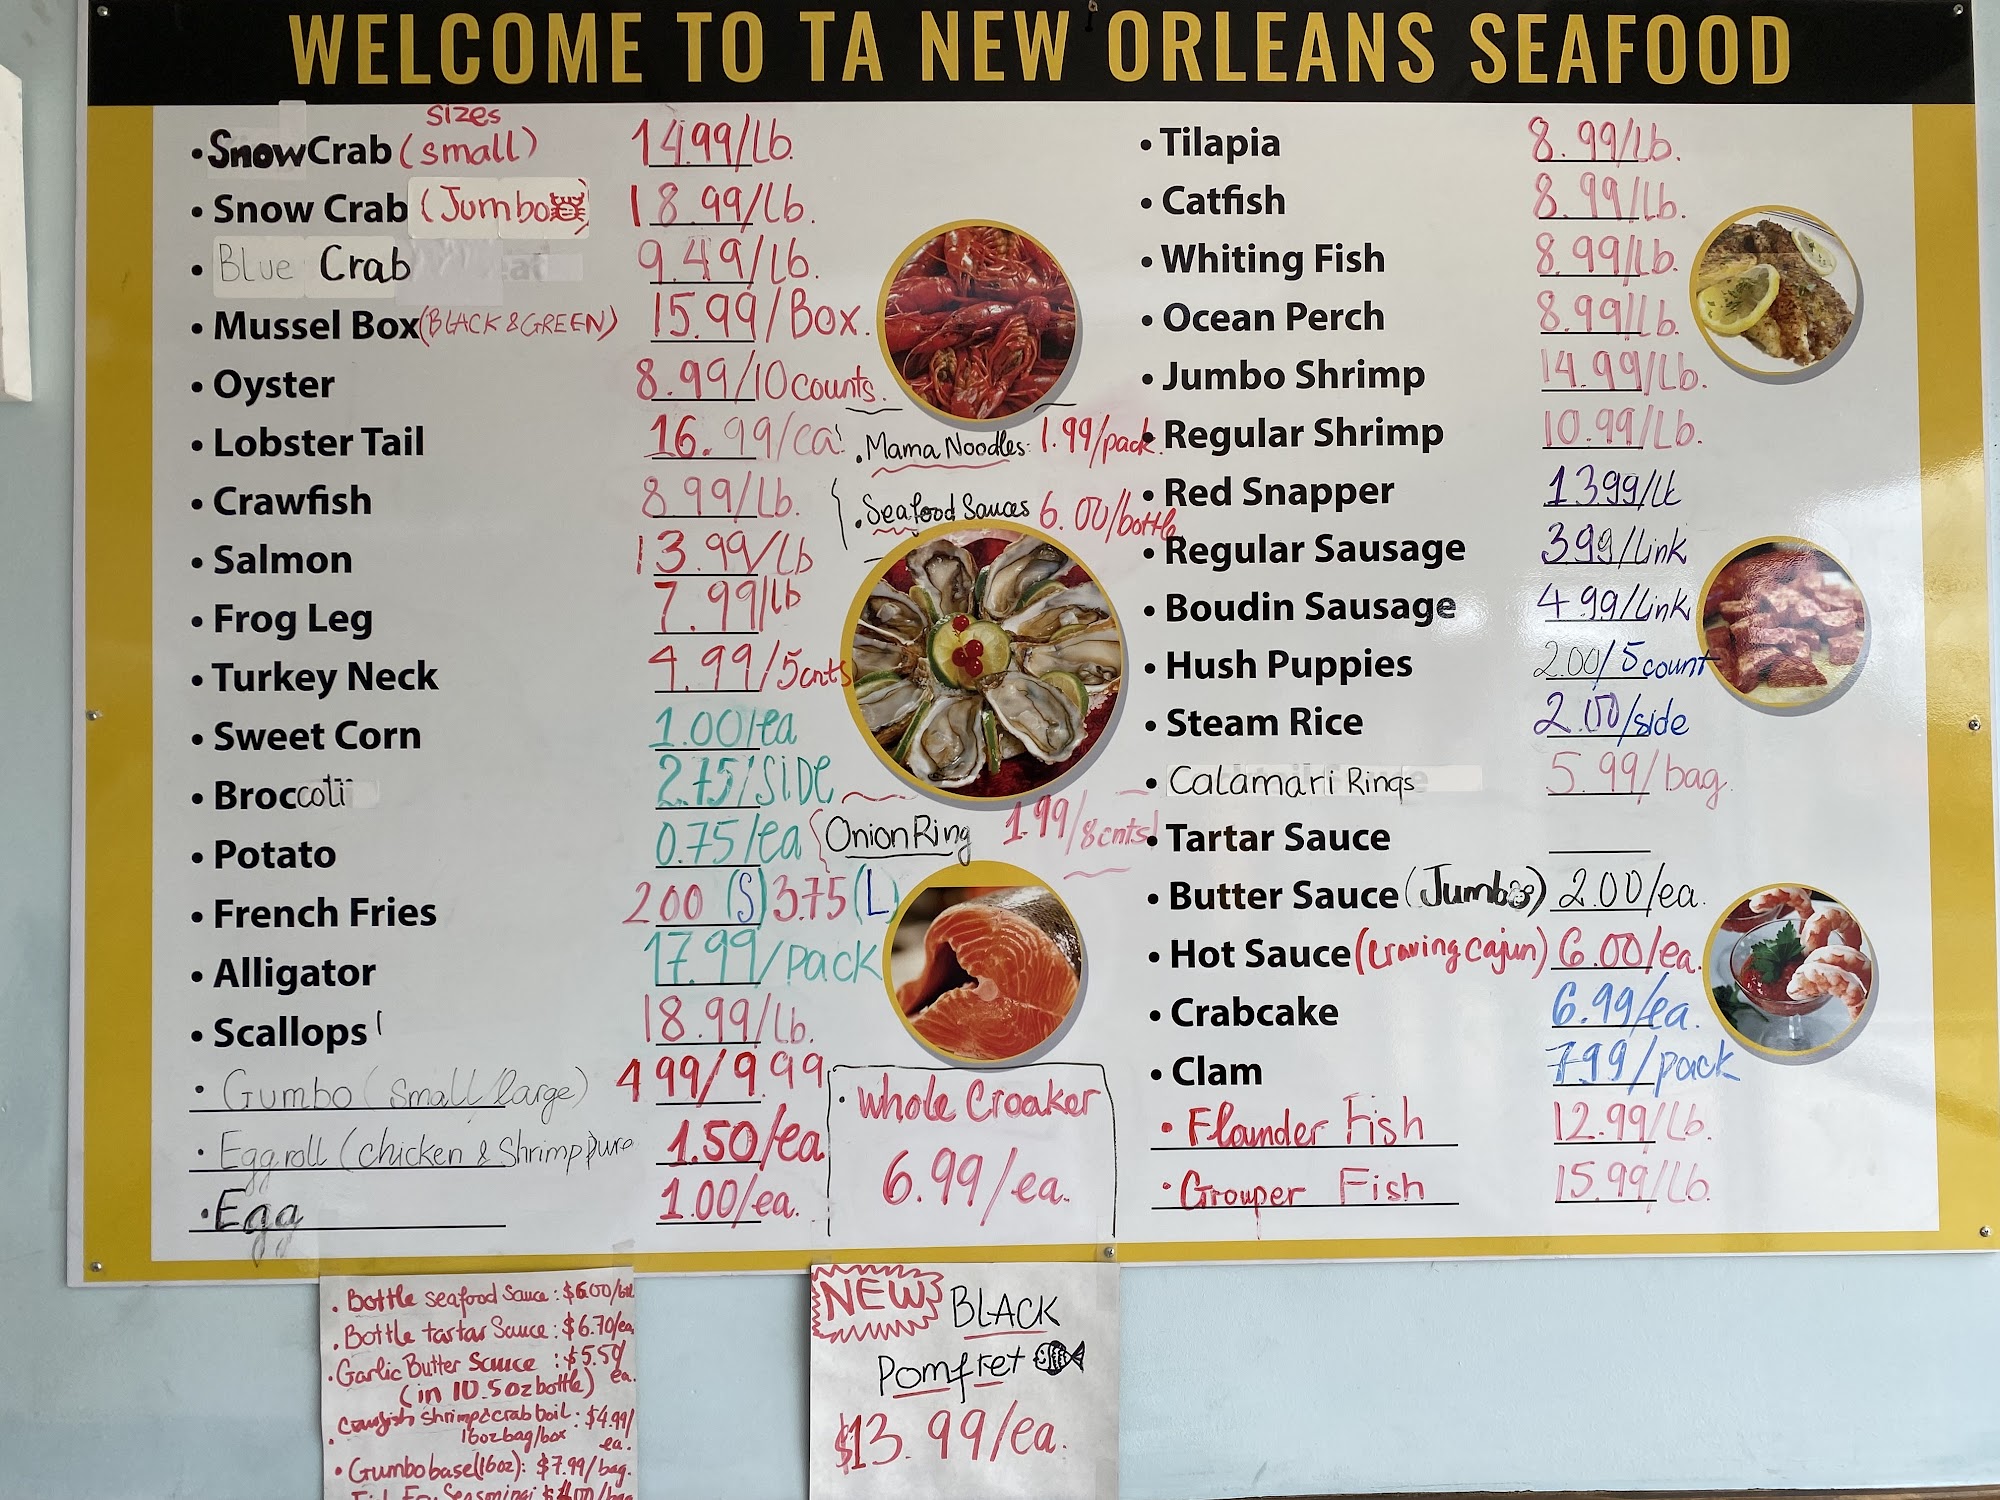 WELCOME TO TA NEW ORLEANS SEAFOOD
sizes
• Snow Crab (small) 14.99/Lb.
• Snow Crab (Jumbo) 18.99/Lb.
• Blue Crab 9.49/Lb.
• Mussel Box (BLACK & GREEN) 15.99/Box.
• Oyster 8.99/10 counts.
• Lobster Tail 16.99/ea.
• Crawfish 8.99/Lb.
• Salmon 13.99/Lb
• Frog Leg 7.99/lb
• Turkey Neck 4.99/5cnts
• Sweet Corn 1.00/ea
• Broccoli 2.75/SIDE
• Potato 0.75/ea
• French Fries 2.00 (S) 3.75 (L)
• Alligator 17.99/pack
• Scallops 18.99/Lb.
• Gumbo (small/large) 4.99/9.99
• Egg roll (chicken & Shrimp 1.50/ea
• Egg 1.00/ea.
• Mama Noodles: 1.99/pack.
• Seafood Sauces 6.00/bottle
Onion Ring 1.99/8cnts
• Whole Croaker
6.99/ea.
• Tilapia 8.99/Lb.
• Catfish 8.99/Lb.
• Whiting Fish 8.99/Lb.
• Ocean Perch 8.99/Lb.
• Jumbo Shrimp 14.99/Lb.
• Regular Shrimp 10.99/Lb.
• Red Snapper 13.99/Lb
• Regular Sausage 3.99/Link
• Boudin Sausage 4.99/Link
• Hush Puppies 2.00/5 count
• Steam Rice 2.00/side
• Calamari Rings 5.99/bag
• Tartar Sauce
• Butter Sauce (Jumbo) 2.00/ea.
• Hot Sauce (Craving Cajun) 6.00/ea.
• Crabcake 6.99/ea.
• Clam 7.99/pack
• Flounder Fish 12.99/Lb.
• Grouper Fish 15.99/Lb.
• Bottle seafood Sauce: $6.00/btl
• Bottle tartar Sauce: $6.70/ea
• Garlic Butter Sauce : $5.50/
(in 10.5oz bottle) ea.
• Crawfish shrimp & crab boil: $4.99/
16oz bag/box ea.
• Gumbo base (16oz): $7.99/bag.
NEW BLACK
Pomfret
$13.99/ea.